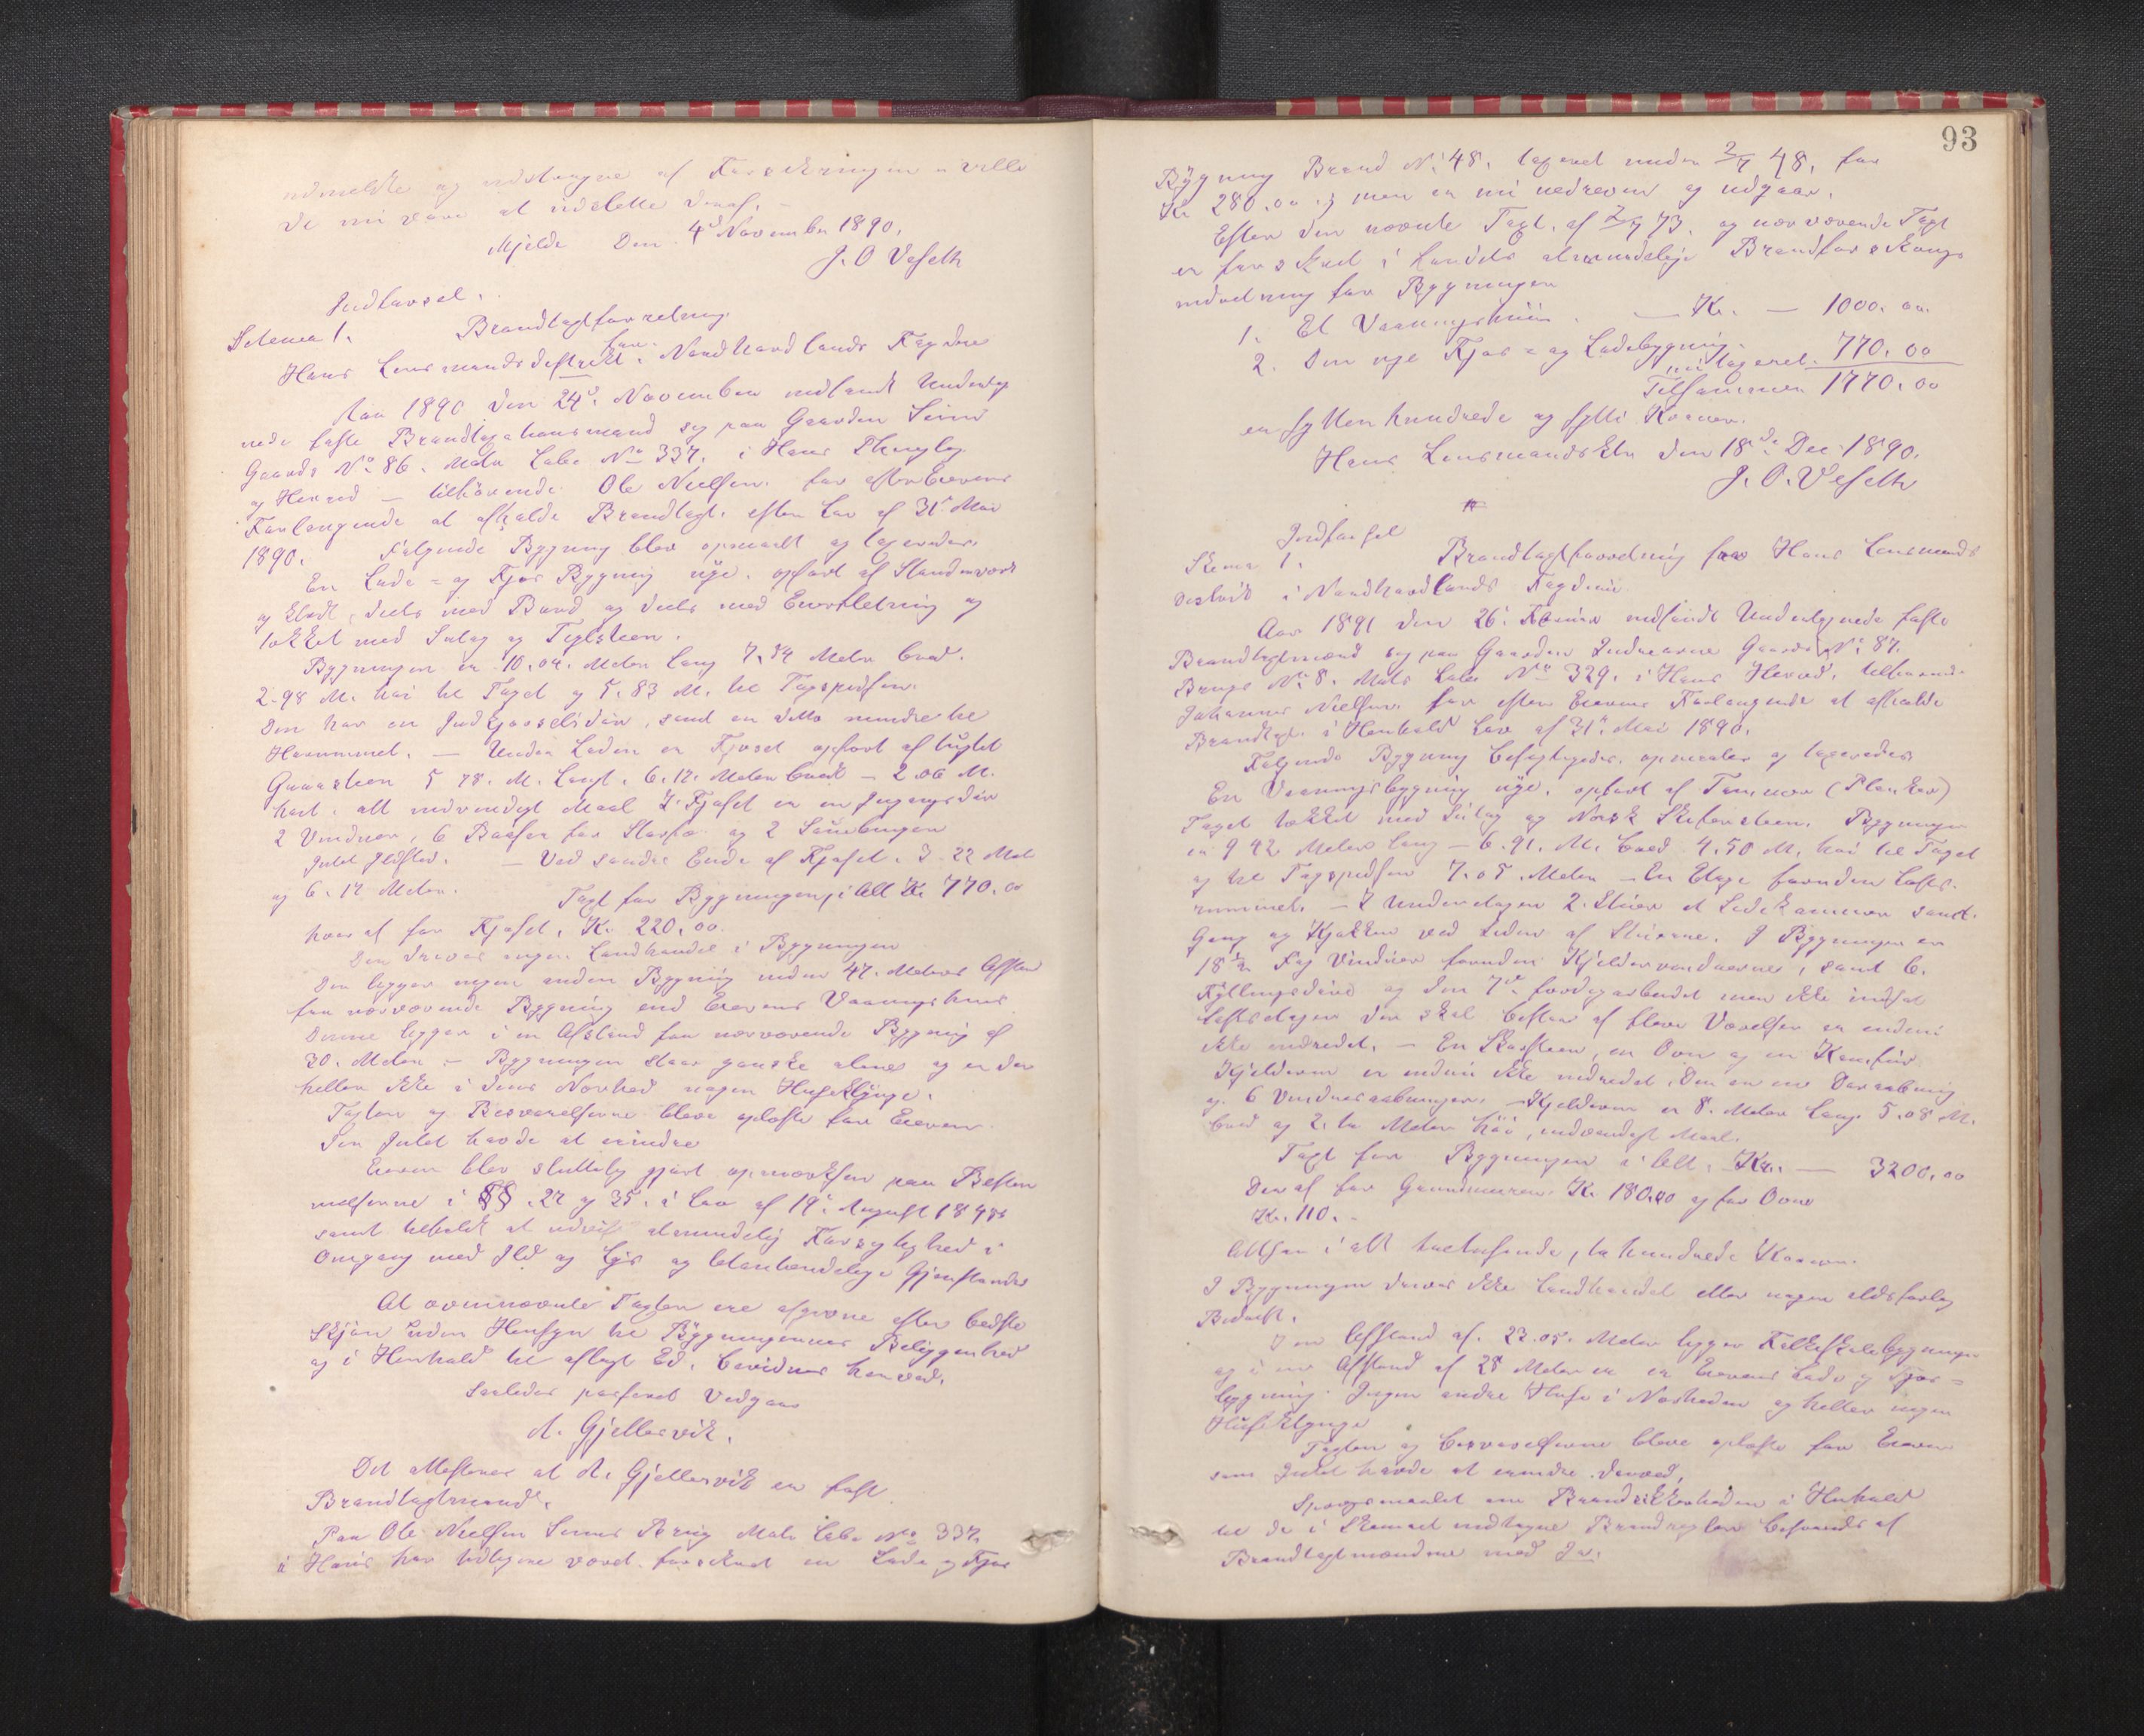 udmeldte og udstregne af Forsikringen ville
de nu være at udslette deraf.
Mjelde Den 4d November 1890.
J. O Veseth
Indførsel.
Schema 1. Brandtaxtforretning
for
Haus Lensmandsdistrikt i Nordhordlands Fogderi
Aar 1890 den 24d November indfandt Underteg
nede faste Brandtaxtionsmænd sig paa Gaarden
Gaards No 86. Matr Løbe No 337. i Haus Thinglag
og Herred — tilhörende Ole Nielsen for efter Eierens
Forlangende at afholde Brandtaxt efter Lov af 31te Mai
1890. Følgende Bygning blev opmaalt og taxeredes.
En Lade- og Fjøs Bygning nye. opført af Standerværk
og klædt, deels med Bord og deels med og
tækket med Sutag og Teglsteen.
Bygningen er 10.04. Meter lang 7.54 Meter bred.
2.98 M. høi til Taget og 5.83 M. til Tagspidsen.
Den har en Indkjørselsdør, samt en ditto mindre til
Hørummet. — Under Laden er Fjøset opført af
Graasteen 5 78. M. Langt. 6.12. Meter bredt — 2.06 M.
høit. alt indvendigt Maal I Fjøset er en Indgangsdør
2 Vinduer, 6 Baaser for Storfæ og 2 Sauebinger
Intet Ildsted. — Ved søndre Ende af Fjøset. 3.22 Met
og 6.12 Meter. Taxt for Bygningen i Alt Kr 770.00
hvoraf for Fjøset, Kr. 220.00.
Der drives ingen Landhandel i Bygningen
Der ligger ingen anden Bygning inden 47. Meters Afstand
fra nærværende Bygning end Eierens Vaaningshuus
Denne ligger i en Afstand fra nærværende Bygning af
30. Meter — Bygningen staar ganske alene og er der
heller ikke i dens Nærhed nogen Huseklynge.
Taxten og Besvarelserne bleve oplæste for Eieren
som Intet havde at erindre
Eieren blev sluttelig gjort opmærksom paa Bestem
melserne i §§. 22 og 35. i Lov af 19. August 1845
samt tilholdt at udvise almindelig Forsigtighed i
Omgang med Ild og Lys og letantændelige Gjenstande
At ovennævnte Taxter ere afgivne efter bedste
Skjøn uden Hensyn til Bygningernes Beliggenhed
og i Henhold til aflagt Ed. bevidnes herved.
Saaledes passeret Vedgaar
A. Gjellesvik.
Det attesteres at A. Gjellesvik er fast
Brandtaxtmand.
Paa Ole Nielsen Brug Matr Løbe No 337.
i Haus har tidligere været forsikret en Lade og Fjøs
93
Bygning Brand No 48. taxeret under 2/7 48. for
Kr 280.00.; men er nu nedreven og udgaar.
Efter den nævnte Taxt. af 2/7 73. og nærværende Taxt
er forsikret i Landets almindelige Brandforsikrings
indretning for Bygningen
1. Et Vaaningshuus — Kr. — 1000.00.
2. Den nye Fjøs- og Ladebygning.
nu taxeret 770.00
Tilsammen 1770.00
er sytten hundrede og sytti Kroner.
Haus Lensmandsktr den 18de Dec. 1890.
J. O. Veseth
Indførsel
Skema 1. Brandtaxtforretning for Haus Lensmands
distrikt i Nordhordlands Fogderi
Aar 1891 den 26. indfandt Undertegnede faste
Brandtaxtmænd sig paa Gaarden Indre Gaards No 87.
Brugs No 8. Matr Løbe No 329. i Haus Herred, tilhørende
Johannes Nielsen for efter Eierens Forlangende at afholde
Brandtaxt i Henhold Lov af 31te Mai 1890.
Følgende Bygning besigtigedes, opmaaltes og taxeredes
En Vaaningsbygning nye. opført af Tømmer (Planker)
Taget tækket med Sutag og Norsk Skifersteen. Bygningen
er 9 42 Meter lang — 6.91. M. bred 4.50 M. høi til Taget
og til Tagspidsen 7.05. Meter — En Etage foruden Lofts-
rummet. — I Underetagen 2. Stuer et Sidekammer samt
Gang og Kjøkken ved Siden af Stuerne. I Bygningen er
18 1/2 Fag Vinduer foruden Kjeldervinduerne, samt 6.
Fyllingsdøre og den 7de færdigarbeidet men ikke indsat
Loftsetagen der skal bestaa af flere Værelser er endnu
ikke indredet. — En Skorsteen, en Ovn og en Komfur
Kjelderen er endnu ikke indredet. Der er en Døraabning
og 6 Vinduesaabninger. — Kjelderen er 8. Meter Lang 5.08 M.
bred og 2. Meter høi, indvendigt Maal.
Taxt for Bygningen i Alt. Kr. — 3200.00
Deraf for Grundmuren Kr. 180.00 og for Ovne
Kr. 110.
Altsaa i alt tretusende, to hundrede Kroner.
I Bygningen drives ikke Landhandel eller nogen ildsfarlig
Bedrift.
I en Afstand af. 22.05. Meter ligger Folkeskolebygningen
og i en Afstand af 28 Meter er Eierens Lade og Fjøs-
bygning. Ingen andre Huse i Nærheden og heller ingen
Huseklynge
Taxten og Besvarelserne bleve oplæste for Eieren
som Intet havde at erindre derved.
Spørgsmaalet om Brandsikkerheden i Henhold
til de i Skemaet indtagne Brandregler besvareds af
Brandtaxtmændene med Ja.